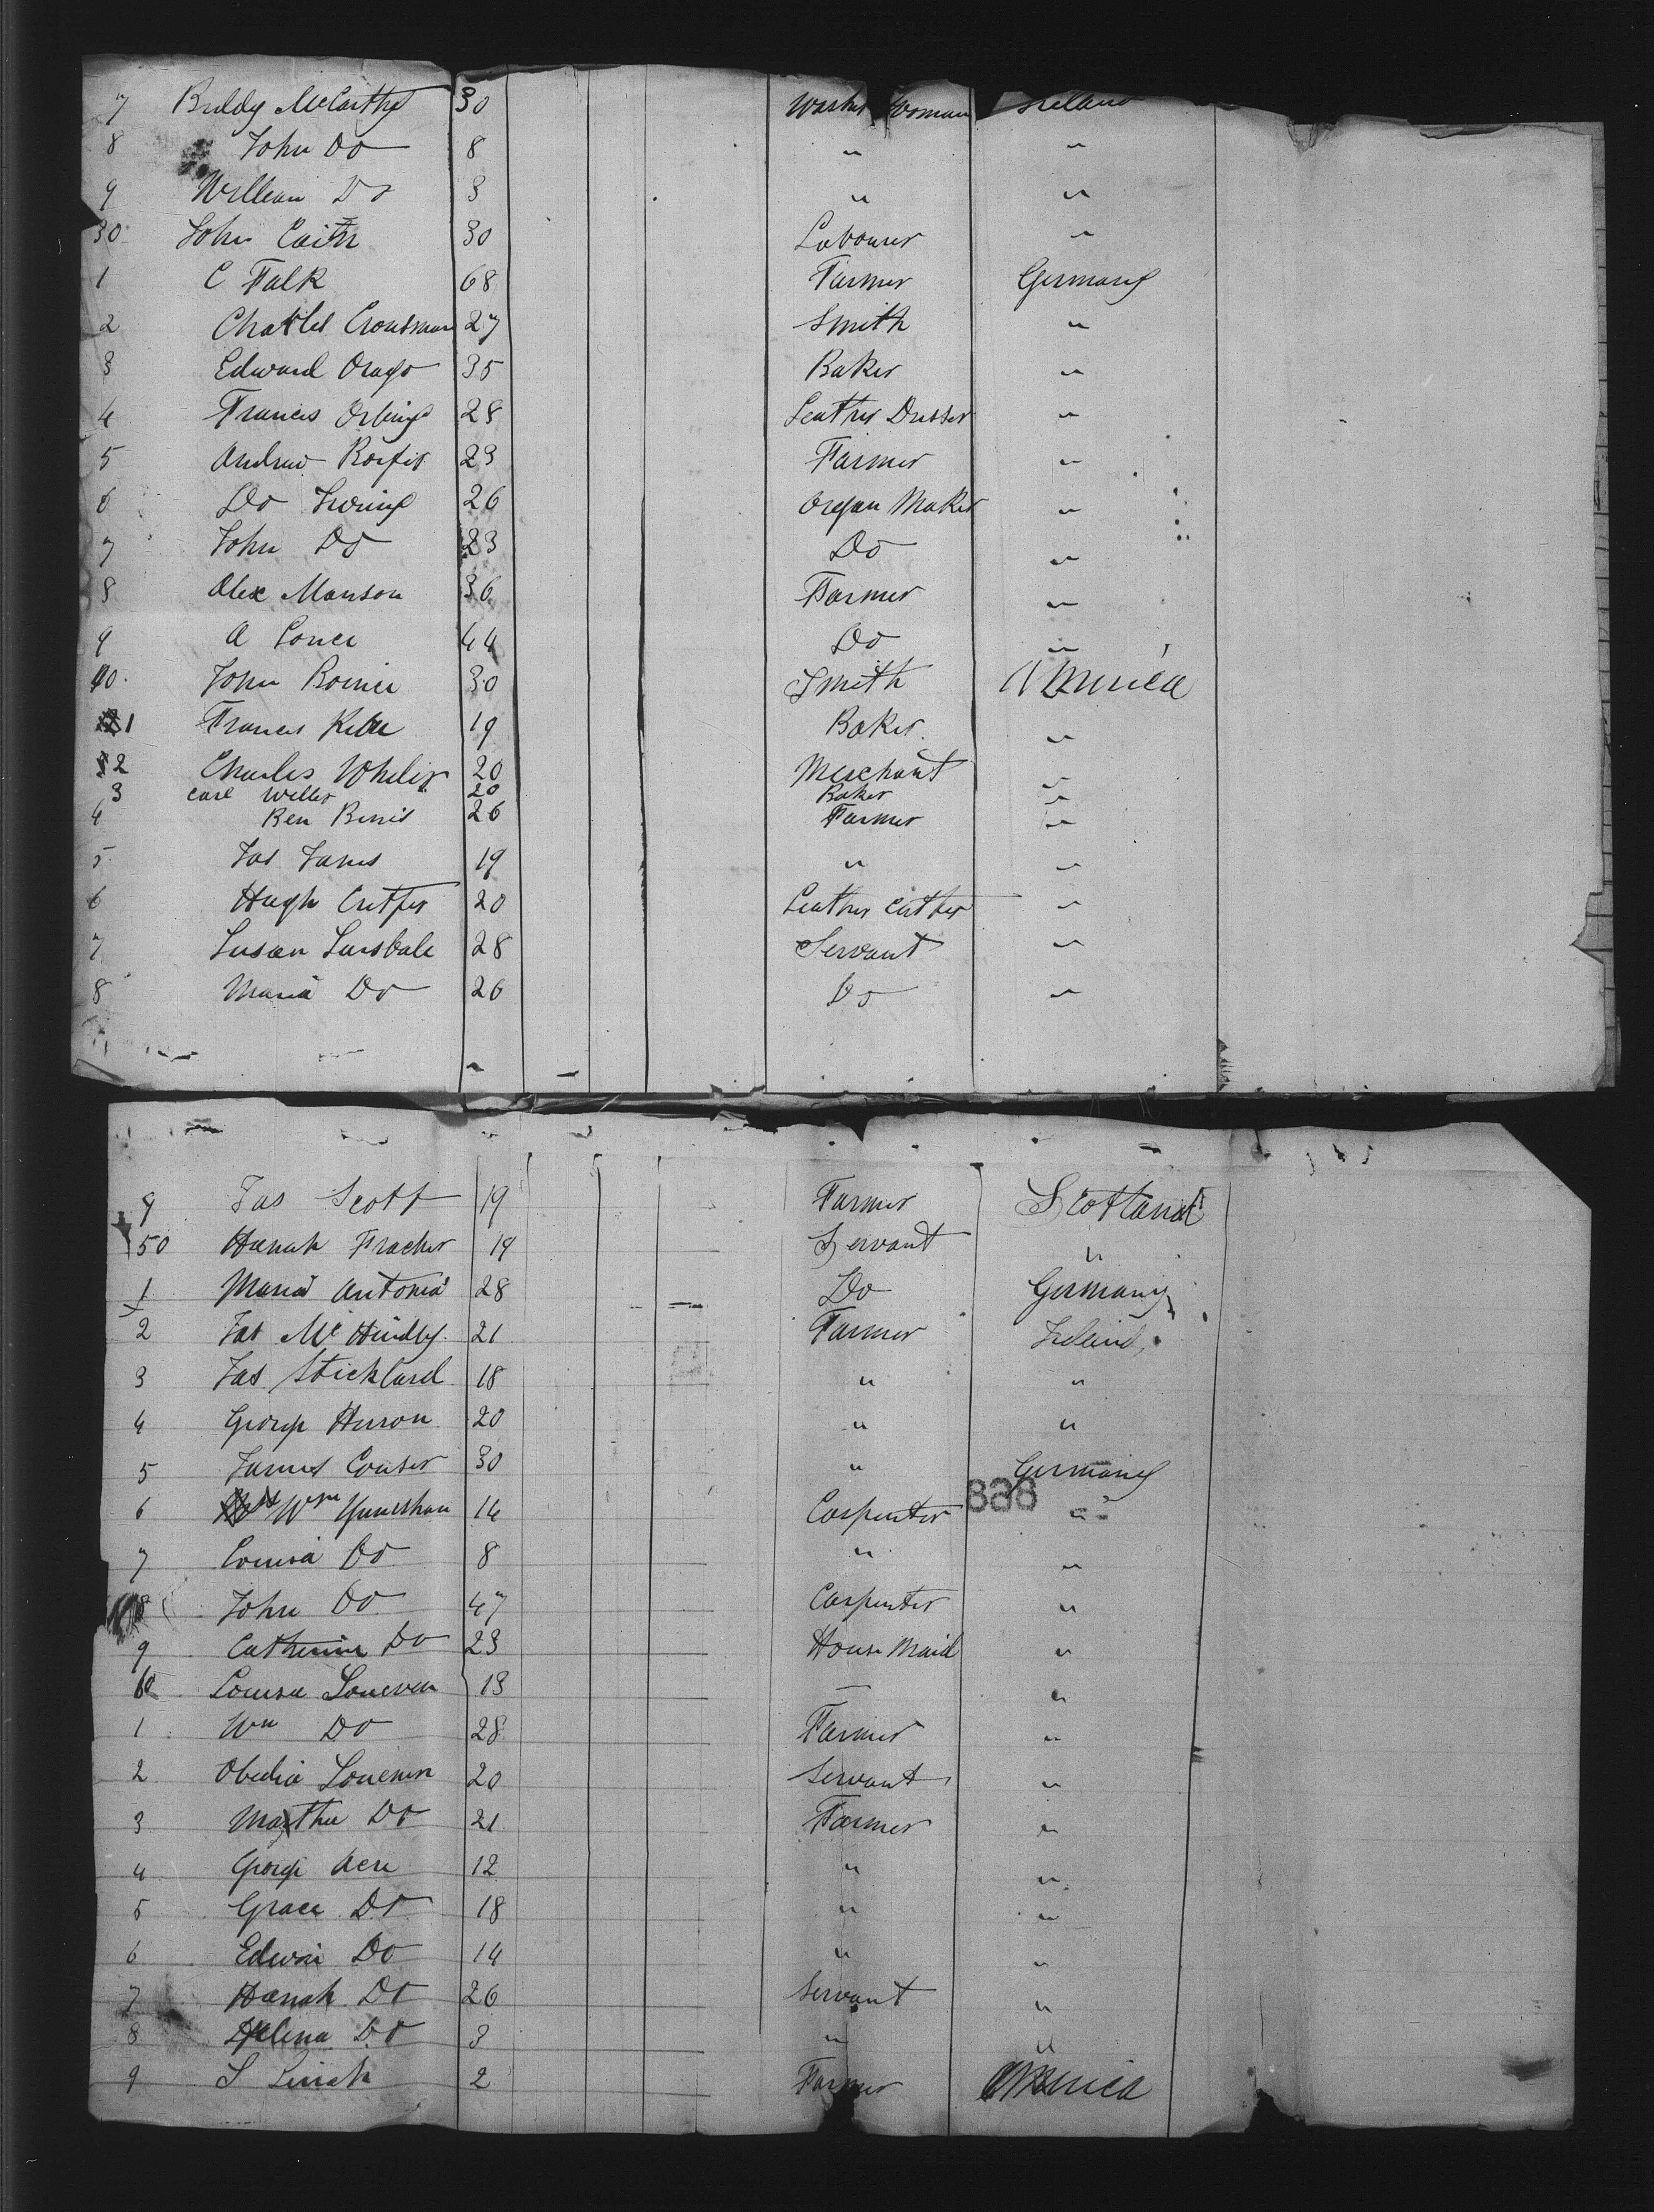 7 Biddy McCarthy 30 Washer Woman Ireland
8 John Do 8 " "
9 William Do 3 " "
30 John 30 Labourer "
1 C Falk 68 Farmer Germany
2 Charles Crousman 27 Smith "
3 Edward 35 Baker "
4 Francis 28 Leather Dresser "
5 Andrew 23 Farmer "
6 Do 26 Organ Maker "
7 John Do 23 Do "
8 Alex Manson 36 Farmer "
9 A 44 Do "
40 John 30 Smith America
1 Francis 19 Baker "
2 Charles Wheler 20 Merchant "
3 Carl Weller 20 Baker "
4 Ben 26 Farmer "
5 Jas James 19 " "
6 Hugh 20 Leather Cutter "
7 Susan 28 Servant "
8 Maria Do 26 Do "
9 Jas Scott 19 Farmer Scotland
50 Hanah 19 Servant "
1 Maria Antonia 28 Do Germany
2 Jas 21 Farmer Ireland
3 Jas Stickland 18 " "
4 George Heron 20 " "
5 James 30 " Germany
888
6 Wm 14 Carpenter "
7 Louisa Do 8 " "
8 John Do 47 Carpenter "
9 Catherine Do 23 House Maid "
60 Louisa 13 — "
1 Wm Do 28 Farmer "
2 Obedia 20 Servant "
3 Do 21 Farmer "
4 George 12 " "
5 Grace Do 18 " "
6 Edwin Do 14 " "
7 Hanah Do 26 Servant "
8 Do 3 " "
9 S 2 Farmer America